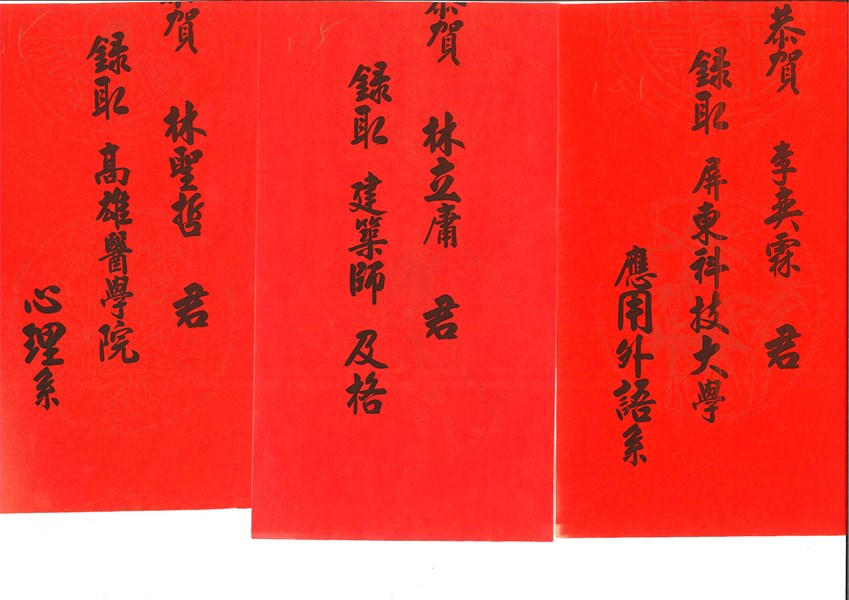 恭賀 李奕霖 君
録取 屏東科技大學
應用外語系
恭賀 林立庸 君
録取 建築師 及格
賀 林聖哲 君
録取 高雄醫學院
心理系